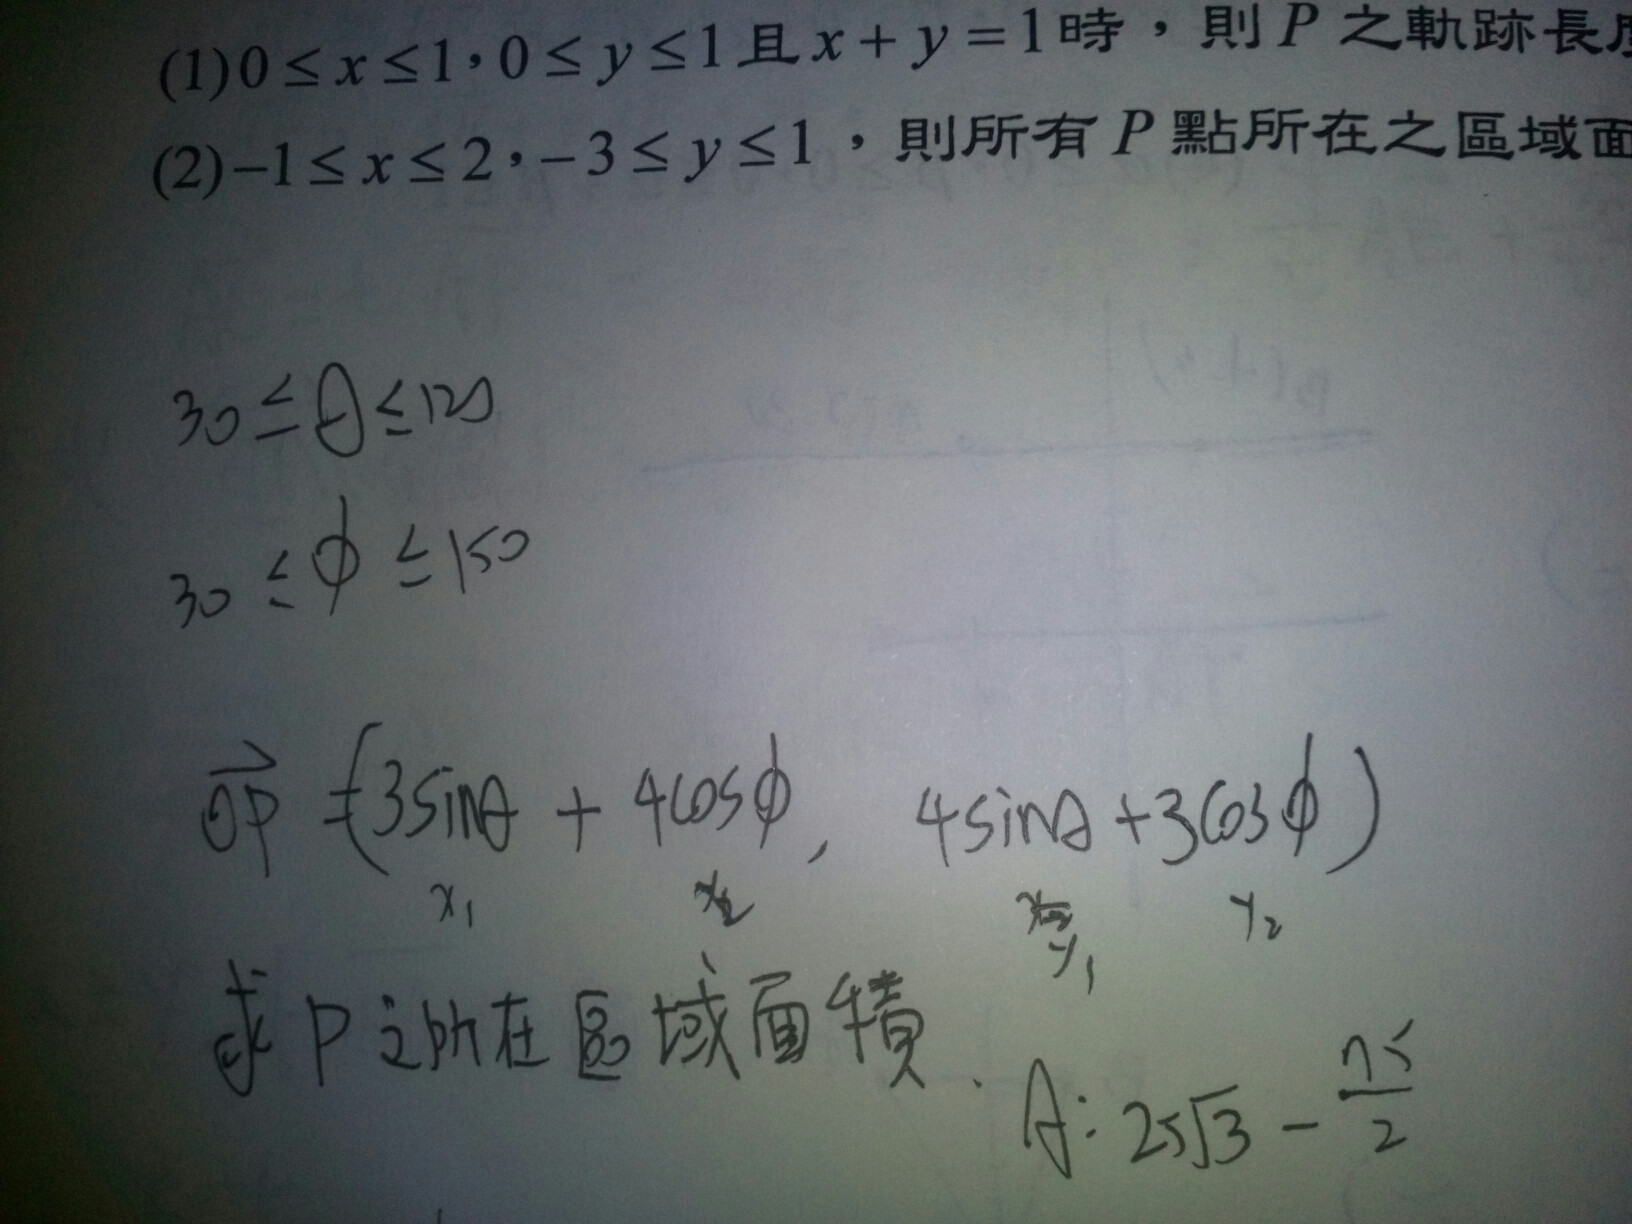 (1) 0 ≤ x ≤ 1，0 ≤ y ≤ 1 且 x + y = 1 時，則 P 之軌跡長
(2) −1 ≤ x ≤ 2，−3 ≤ y ≤ 1，則所有 P 點所在之區域面
30 ≤ θ ≤ 120
30 ≤ ϕ ≤ 150
OP = (3sinθ + 4cosϕ, 4sinθ + 3cosϕ)
x₁ x₂ y₁ y₂
求 P 之所在區域面積.
A: 25√3 −